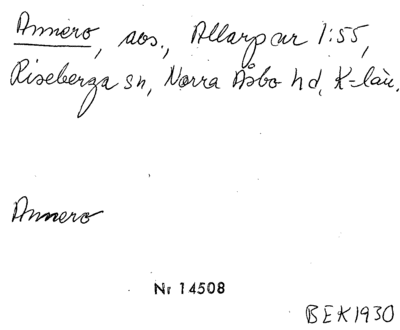 Annero, aos., Allarp ar 1:55,
Riseberga sn, Norra Åsbo hd, K-län.
Annero
Nr 14508
BEK1930